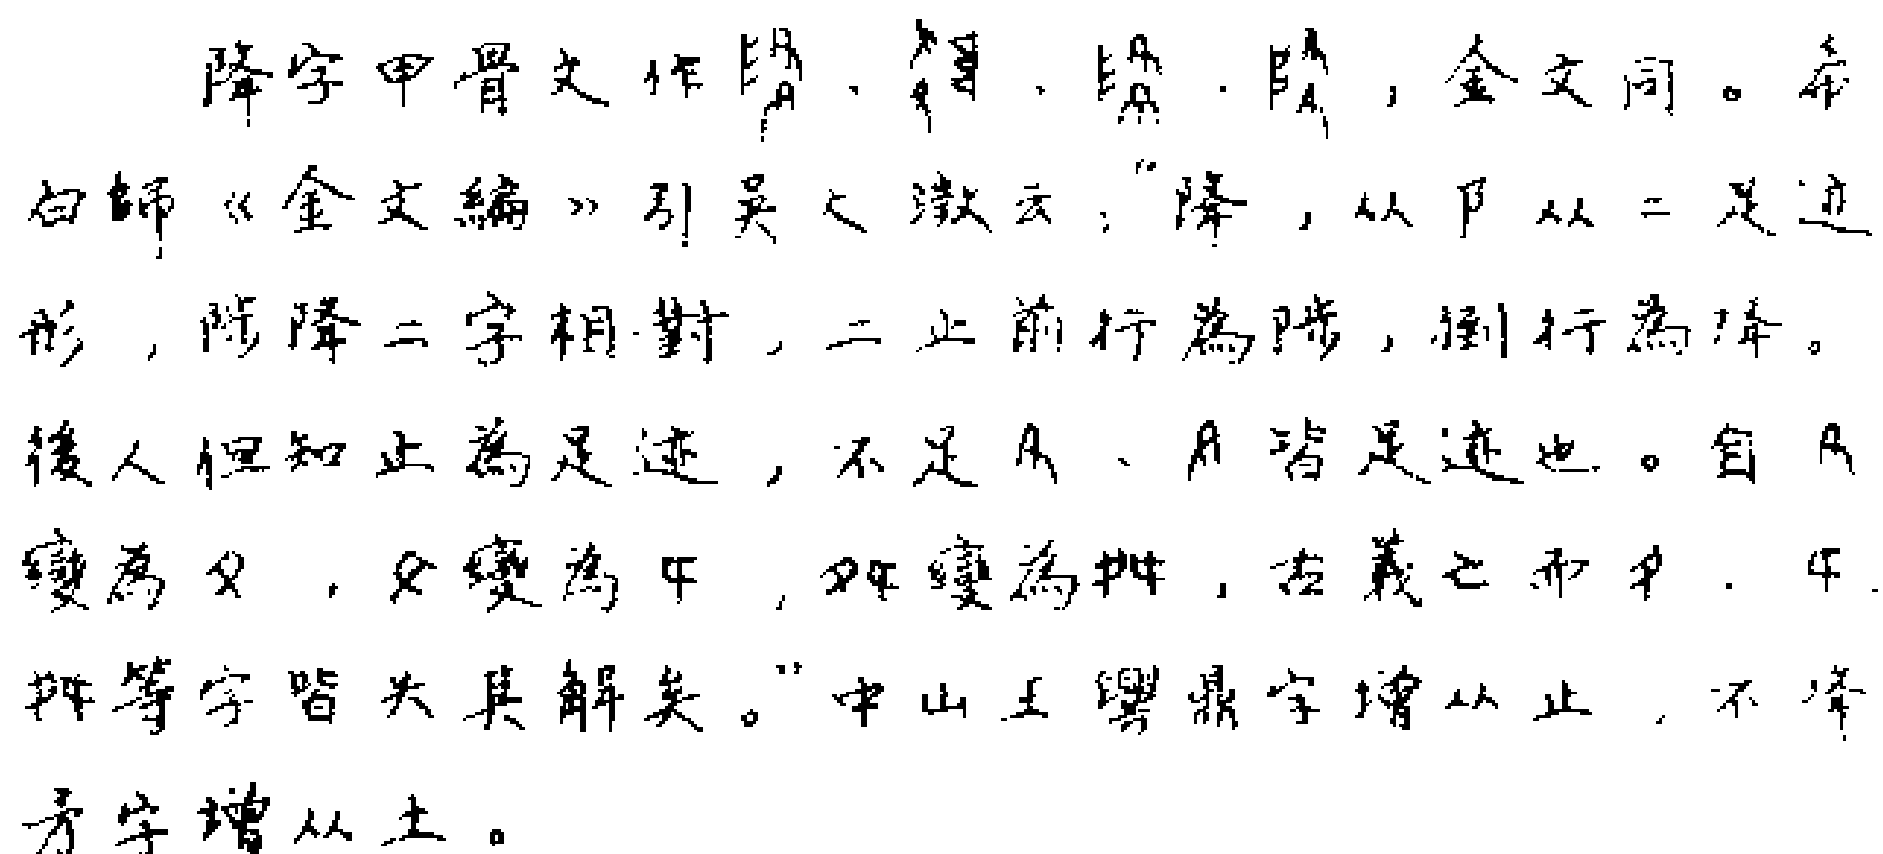 降字甲骨文作、、、，金文同。希
白師《金文編》引吳大澂云："降，从阝从二足迹
形，陟降二字相對，二止前行為陟，倒行為降。
後人但知止為足迹，不足、皆足迹也。自
變為夂，夂變為㐄，變為舛，古義亡而、㐄、
舛等字皆失其解矣。"中山王鼎字增从止，不降
矛字增从土。